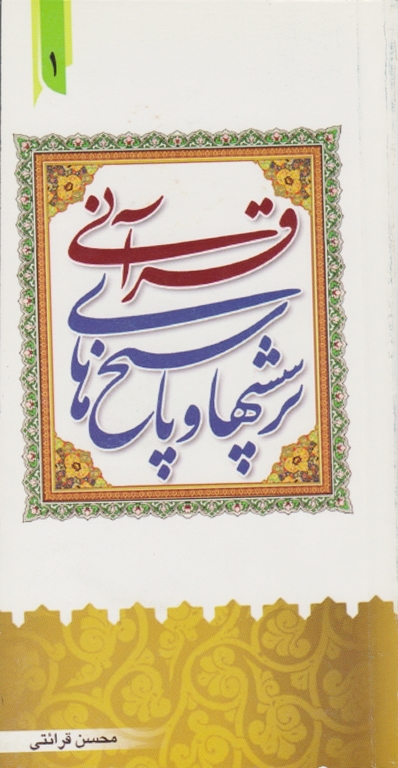 ۱
پرسشها و پاسخ های
قرآنی
محسن قرائتی